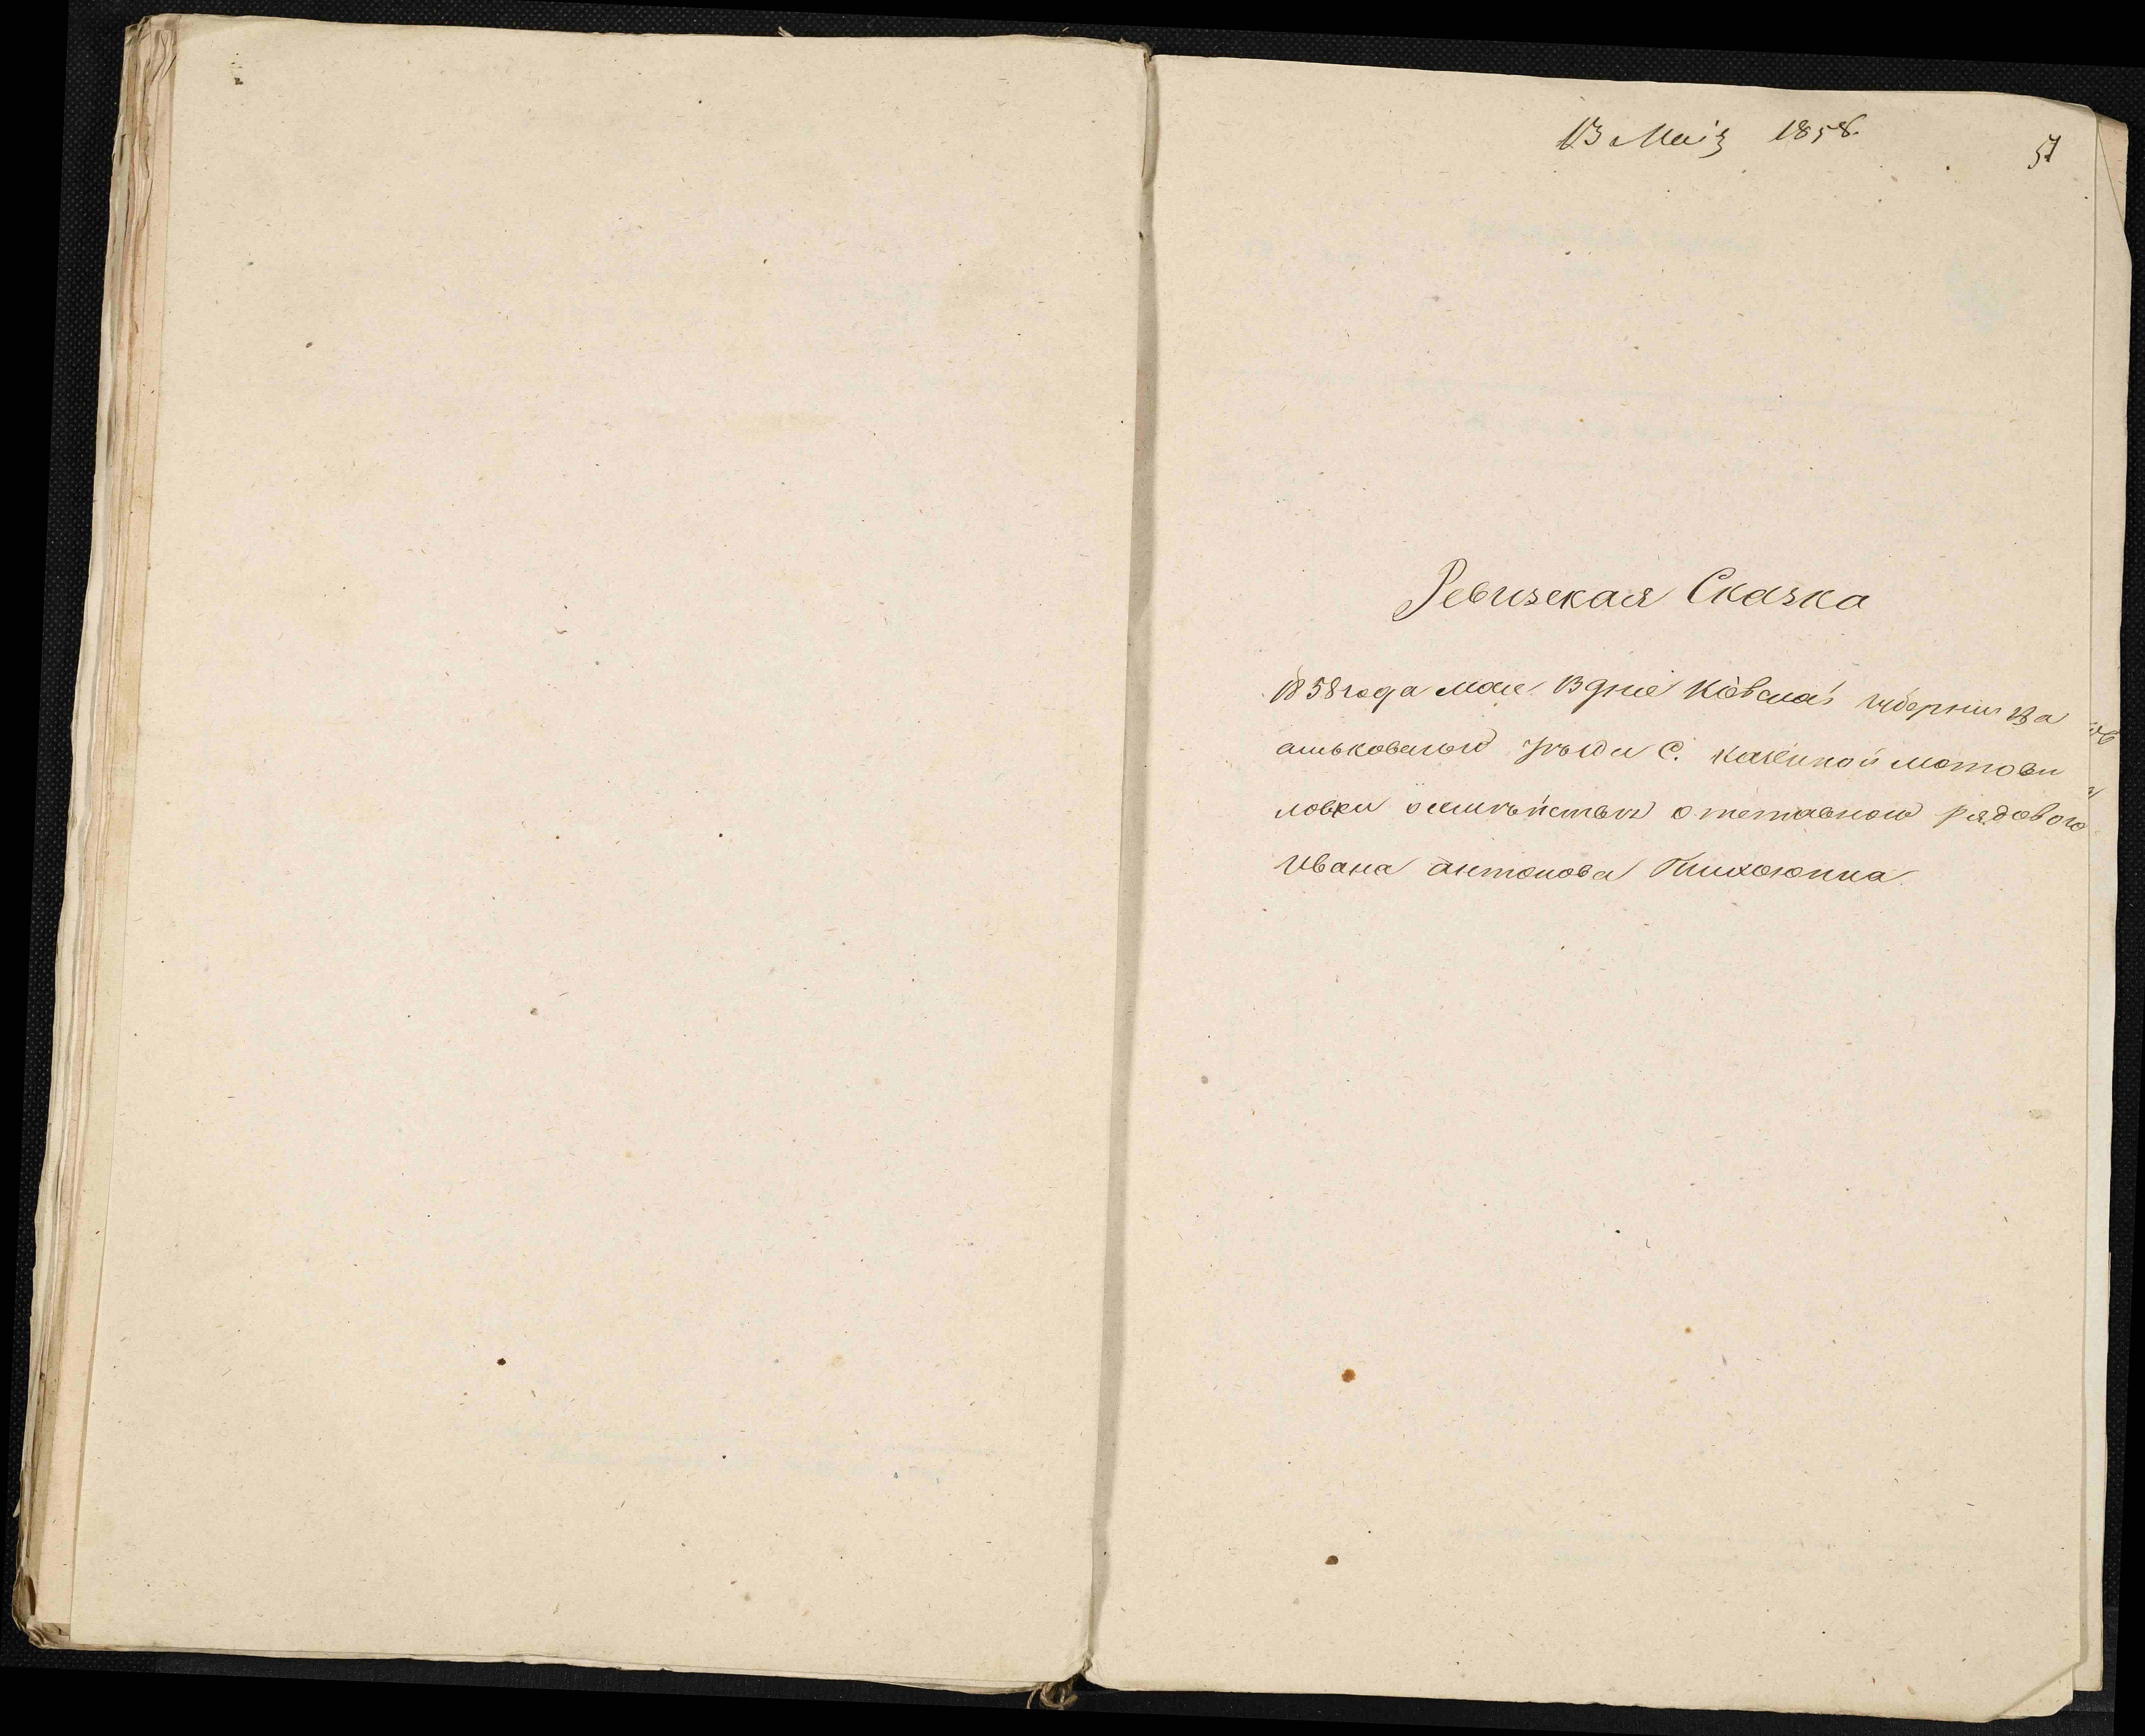 13 Маія 1858.
57
Ревизская Сказка
1858 года мая 13 дня Кіевской губерніи Ва
сильковскаго уѣзда С. Казенной мотови
ловки о семѣйствѣ отставного рядового
Ивана Антонова